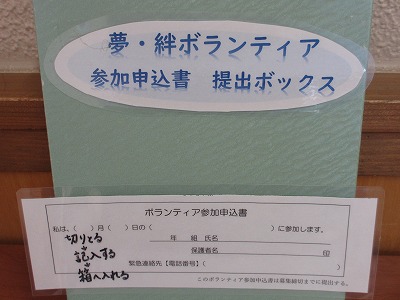 夢・絆ボランティア
参加申込書 提出ボックス
ボランティア参加申込書
私は、( )月( )日の( )に参加します。
切りとる
年 組 氏名
記入する
保護者名 印
箱へ入れる
緊急連絡先【電話番号】( )
このボランティア参加申込書は募集締切までに提出する。